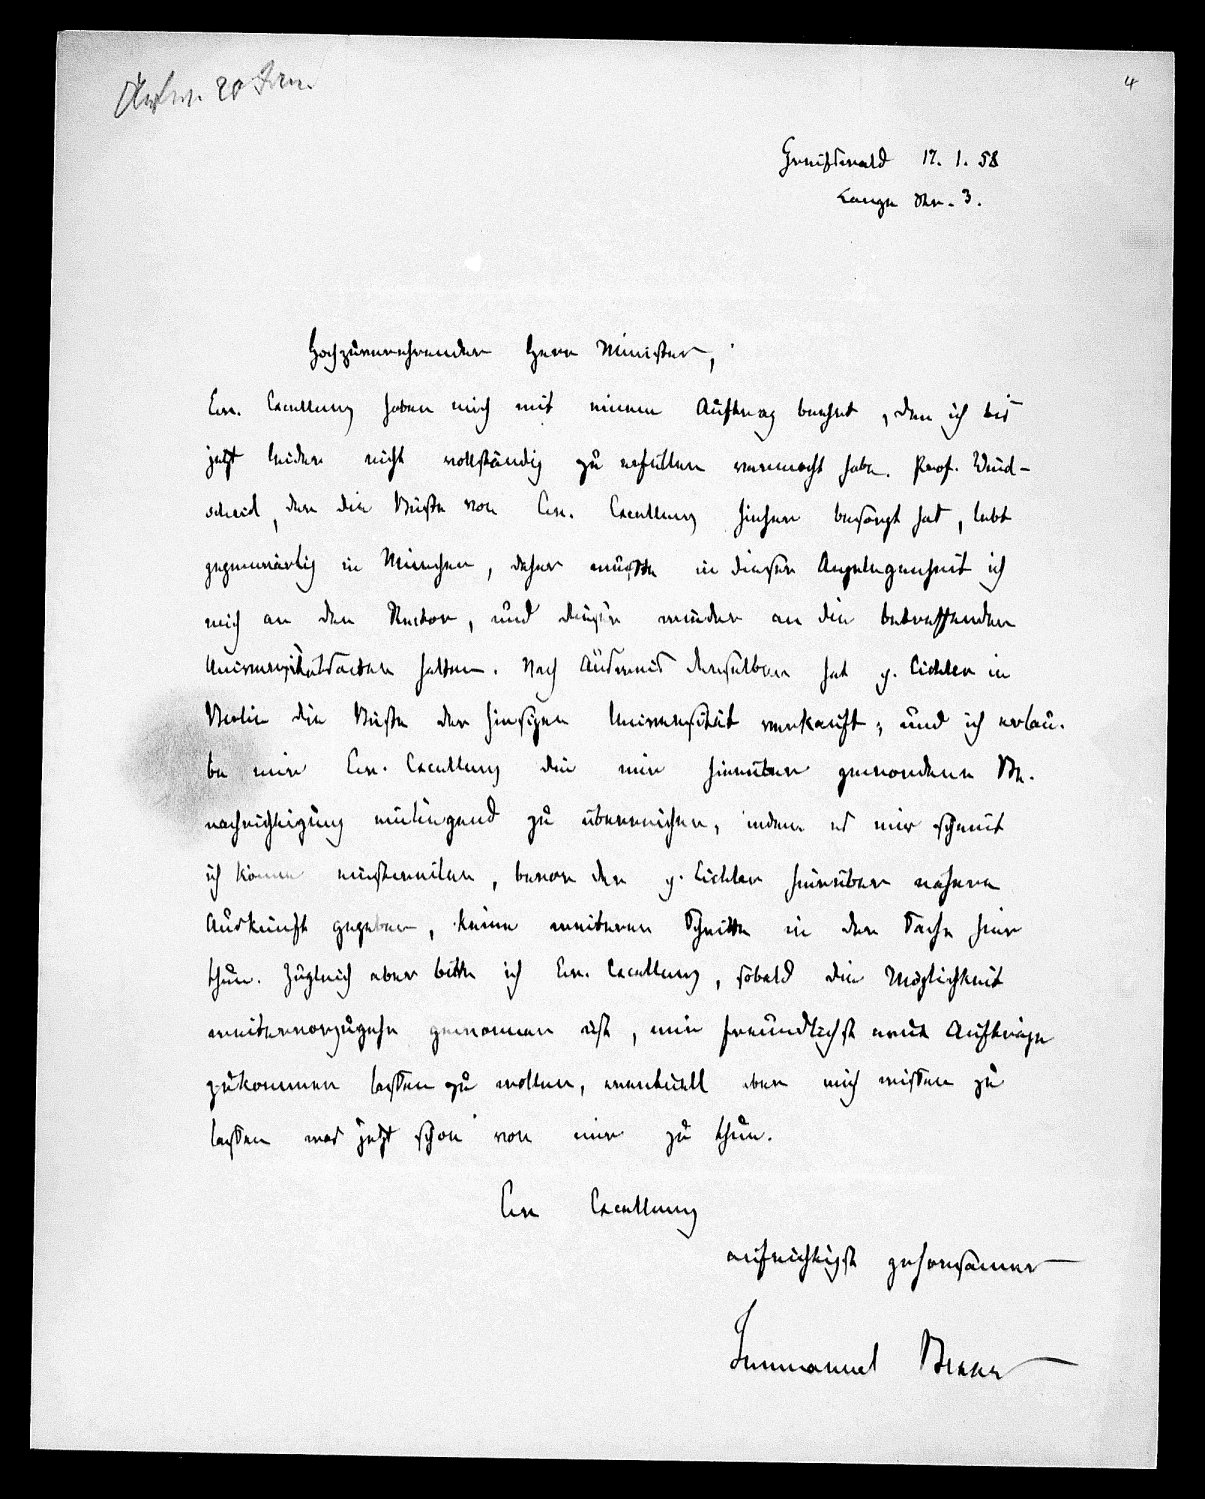 20 Jan.
4
Greifswald 17. 1. 58
Lange Str. 3.
Hochzuverehrender Herr Minister,
Ew. Excellenz haben mich mit einem Auftrag beehrt, den ich bis
jetzt leider nicht vollständig zu erfüllen vermocht habe. Prof. Wind-
scheid, der die Büste von Ew. Excellenz hieher besorgt hat, lebt
gegenwärtig in München, daher mußte in dieser Angelegenheit ich
mich an den Rector, und dieser wieder an die betreffenden
Universitätsacten halten. Nach Ausweis derselben hat p. Eichler in
Berlin die Büste der hiesigen Universität verkauft; und ich erlau-
be mir Ew. Excellenz die mir hierüber gewordene Be-
nachrichtigung einliegend zu überreichen, indem es mir scheint
ich könne einstweilen, bevor der p. Eichler hierüber nähere
Auskunft gegeben, keine weiteren Schritte in der Sache hier
thun. Zugleich aber bitte ich Ew. Excellenz, sobald die Möglichkeit
weitervorzugehn gewonnen ist, mir freundlichst neue Aufträge
zukommen lassen zu wollen, eventuell aber mich wissen zu
lassen was jetzt schon von mir zu thun.
Ew Excellenz
aufrichtigst gehorsamer
Immanuel Bekker